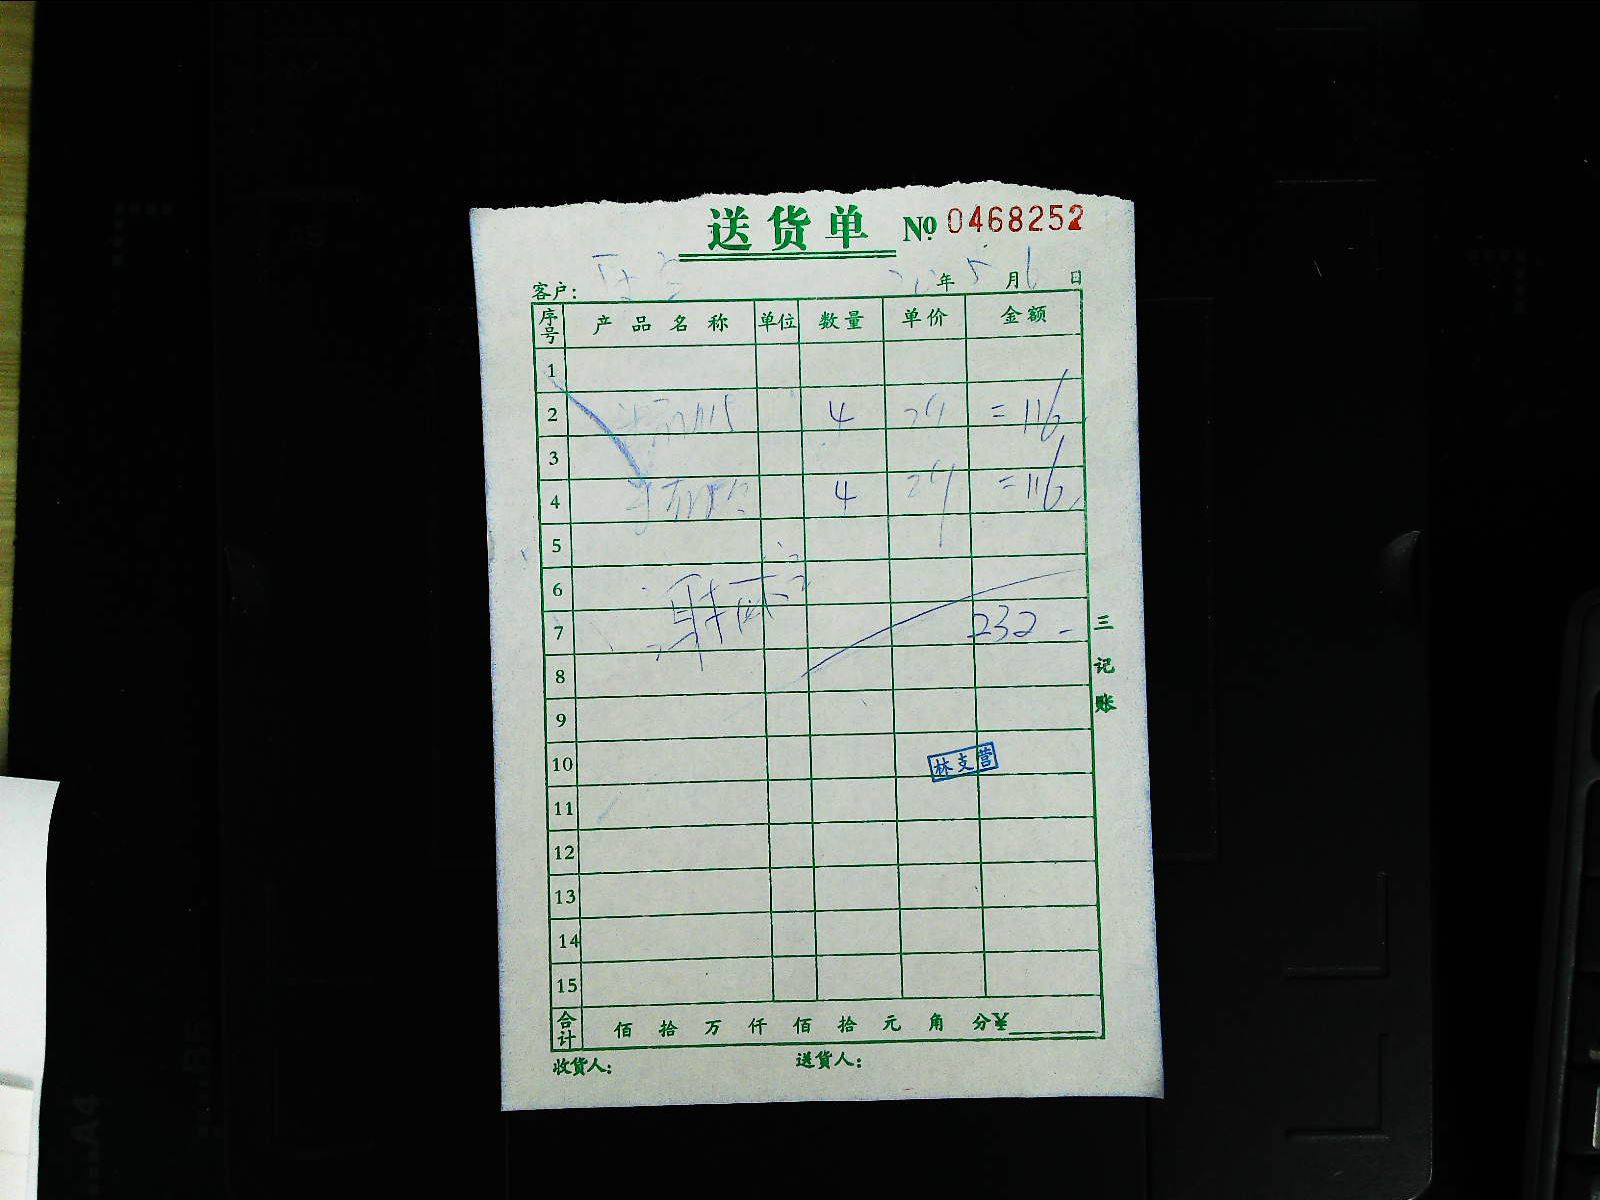 送货单 № 0468252
客户: 年 5 月 6 日
序号 产品名称 单位 数量 单价 金额
1
2 4 29 =116
3
4 4 29 =116
5
6
7 232-
8
9
10
林支营
11
12
13
14
15
合计 佰 拾 万 仟 佰 拾 元 角 分¥
收货人: 送货人:
三记账